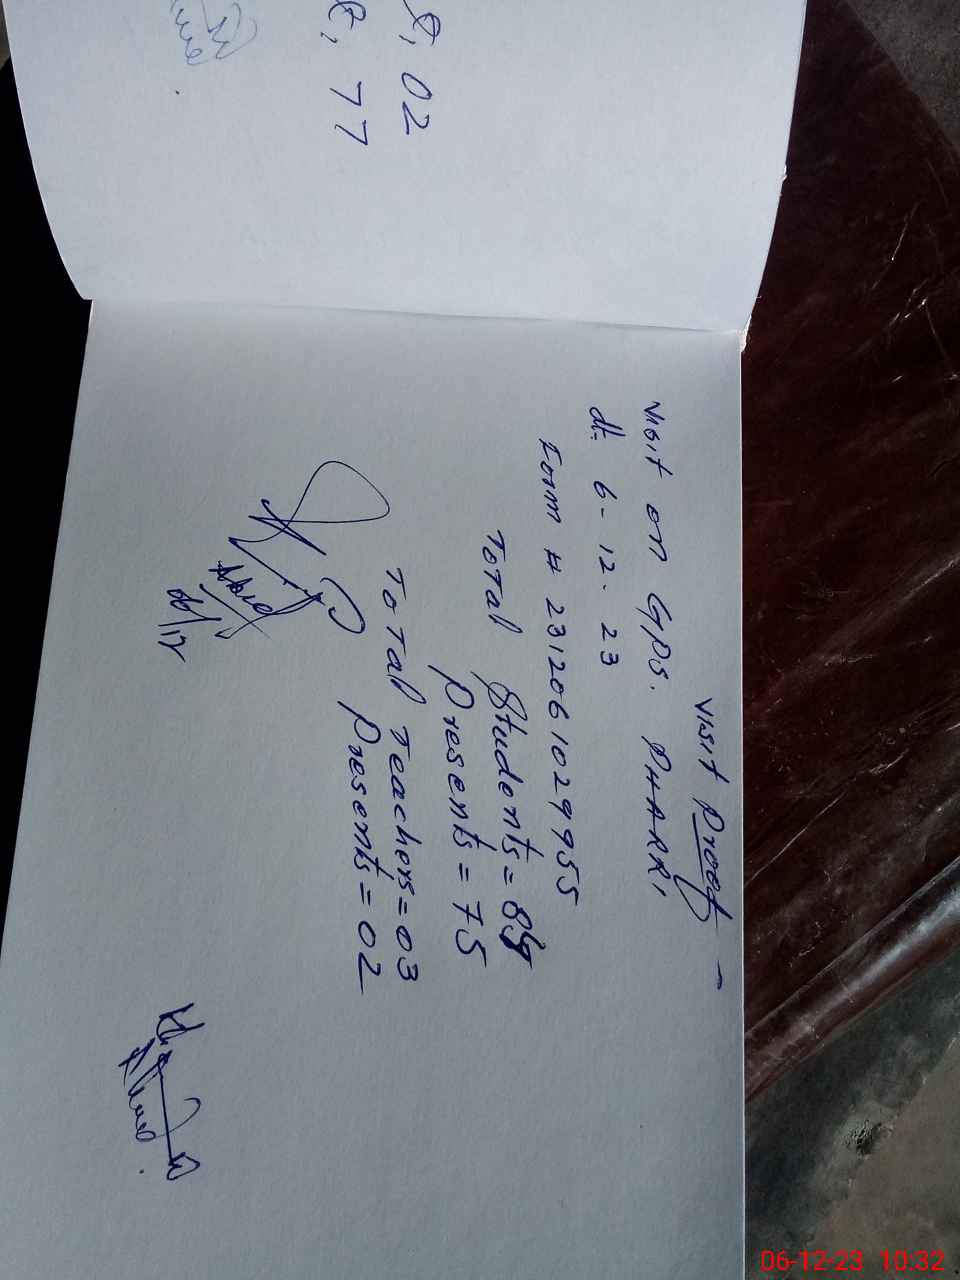 02
77
Visit Proof -
Visit on GPS. PHARRI
dt. 6-12-23
Form # 2312061029955
Total Students = 89
Presents = 75
Total Teachers = 03
Presents = 02
06/12
06-12-23 10:32